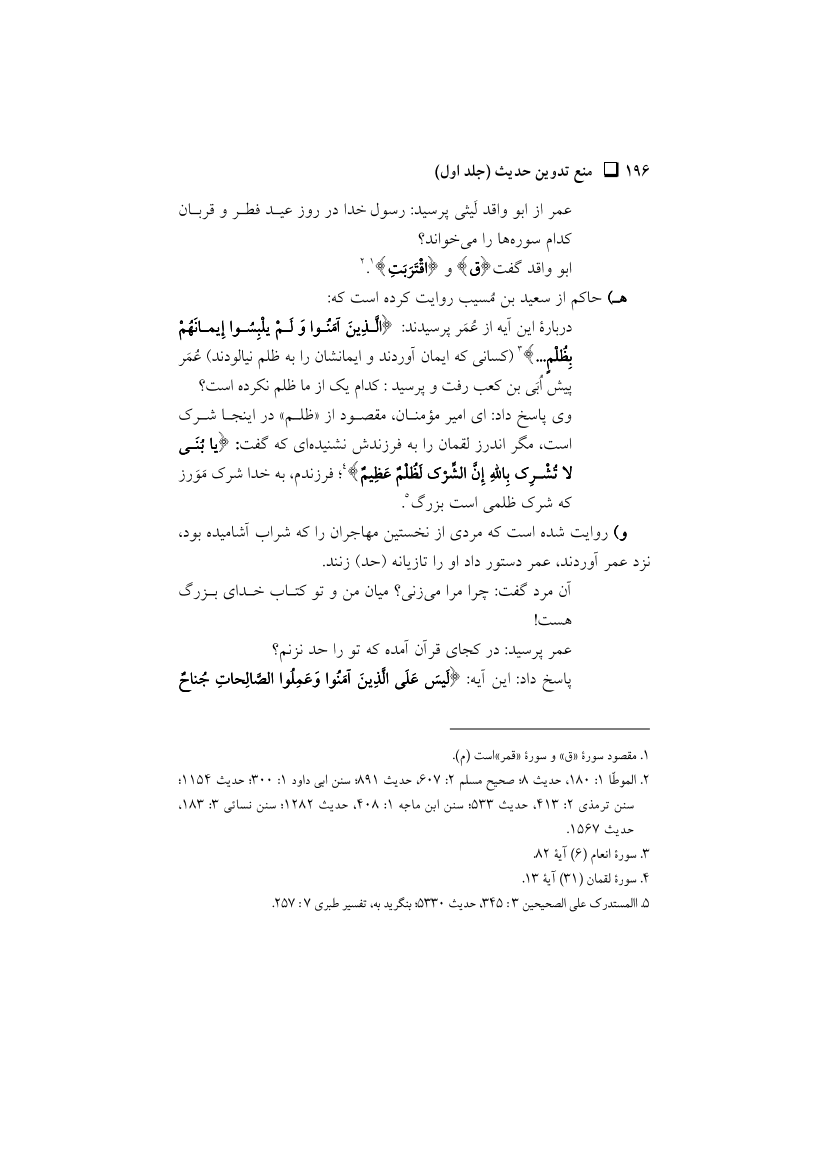 ۱۹۶ ❑ منع تدوین حدیث (جلد اول)
عمر از ابو واقد لَیثی پرسید: رسول خدا در روز عیـد فطـر و قربـان
کدام سوره‌ها را می‌خواند؟
ابو واقد گفت﴿ق﴾ و ﴿اقْتَرَبَتِ﴾۱.۲
هـ) حاکم از سعید بن مُسیب روایت کرده است که:
دربارهٔ این آیه از عُمَر پرسیدند: ﴿الَّـذِینَ آمَنُـوا وَ لَـمْ یلْبِسُـوا إِیمـانَهُمْ
بِظُلْمٍ...﴾۳ (کسانی که ایمان آوردند و ایمانشان را به ظلم نیالودند) عُمَر
پیش اُبَی بن کعب رفت و پرسید : کدام یک از ما ظلم نکرده است؟
وی پاسخ داد: ای امیر مؤمنـان، مقصـود از «ظلـم» در اینجـا شـرک
است، مگر اندرز لقمان را به فرزندش نشنیده‌ای که گفت: ﴿یا بُنَـی
لا تُشْـرِک بِاللهِ إِنَّ الشِّرْک لَظُلْمٌ عَظِیمٌ﴾۴؛ فرزندم، به خدا شرک مَوَرز
که شرک ظلمی است بزرگ۵.
و) روایت شده است که مردی از نخستین مهاجران را که شراب آشامیده بود،
نزد عمر آوردند، عمر دستور داد او را تازیانه (حد) زنند.
آن مرد گفت: چرا مرا می‌زنی؟ میان من و تو کتـاب خـدای بـزرگ
هست!
عمر پرسید: در کجای قرآن آمده که تو را حد نزنم؟
پاسخ داد: این آیه: ﴿لَیسَ عَلَی الَّذِینَ آمَنُوا وَعَمِلُوا الصَّالِحاتِ جُناحٌ
۱. مقصود سورهٔ «ق» و سورهٔ «قمر»است (م).
۲. الموطّا ۱: ۱۸۰، حدیث ۸؛ صحیح مسلم ۲: ۶۰۷، حدیث ۸۹۱؛ سنن ابی داود ۱: ۳۰۰؛ حدیث ۱۱۵۴؛
سنن ترمذی ۲: ۴۱۳، حدیث ۵۳۳؛ سنن ابن ماجه ۱: ۴۰۸، حدیث ۱۲۸۲؛ سنن نسائی ۳: ۱۸۳،
حدیث ۱۵۶۷.
۳. سورهٔ انعام (۶) آیهٔ ۸۲.
۴. سورهٔ لقمان (۳۱) آیهٔ ۱۳.
۵. االمستدرک علی الصحیحین ۳: ۳۴۵، حدیث ۵۳۳۰؛ بنگرید به، تفسیر طبری ۷: ۲۵۷.